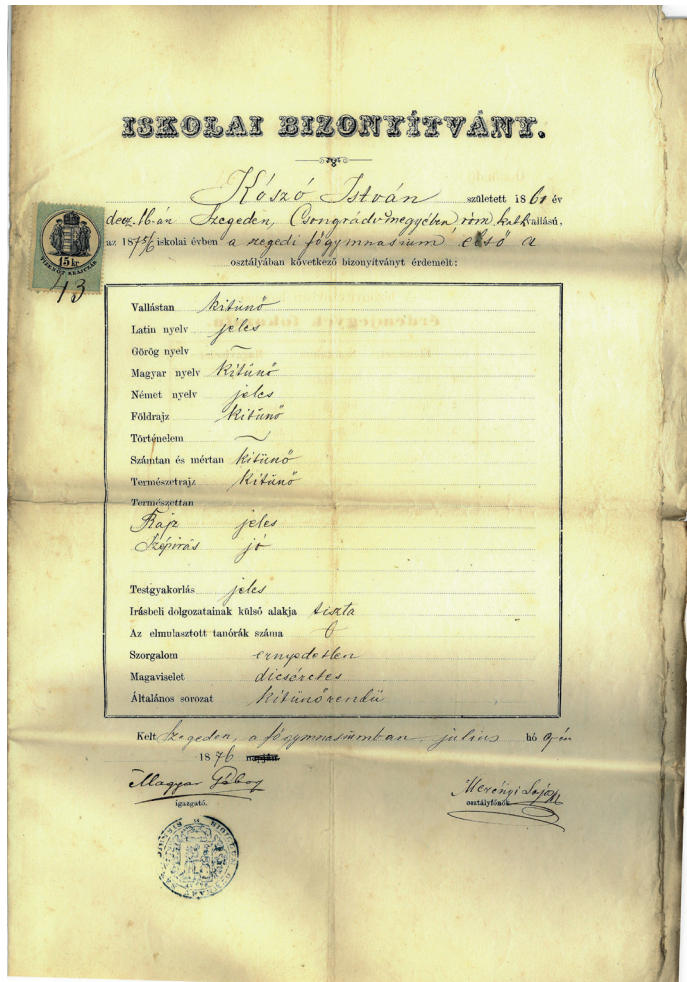 ISKOLAI BIZONYÍTVÁNY.
Kószó István született 1861 év
dec. 16-án Szegeden, Csongrád megyében, róm. kath. vallású,
az 1875/6 iskolai évben a szegedi főgymnasium első a
osztályában következő bizonyítványt érdemelt:
15 kr.
43
Vallástan kitünő
Latin nyelv jeles
Görög nyelv —
Magyar nyelv kitünő
Német nyelv jeles
Földrajz kitünő
Történelem —
Számtan és mértan kitünő
Természetrajz kitünő
Természettan
Rajz jeles
Szépirás jó
Testgyakorlás jeles
Irásbeli dolgozatainak külső alakja tiszta
Az elmulasztott tanórák száma
Szorgalom ernyedetlen
Magaviselet dicséretes
Általános sorozat kitünőrendü
Kelt Szegeden, a főgymnasiumban julius hó 9-én
1876 napján
Magyar Gábor
igazgató.
Merényi Lajos
osztályfőnök